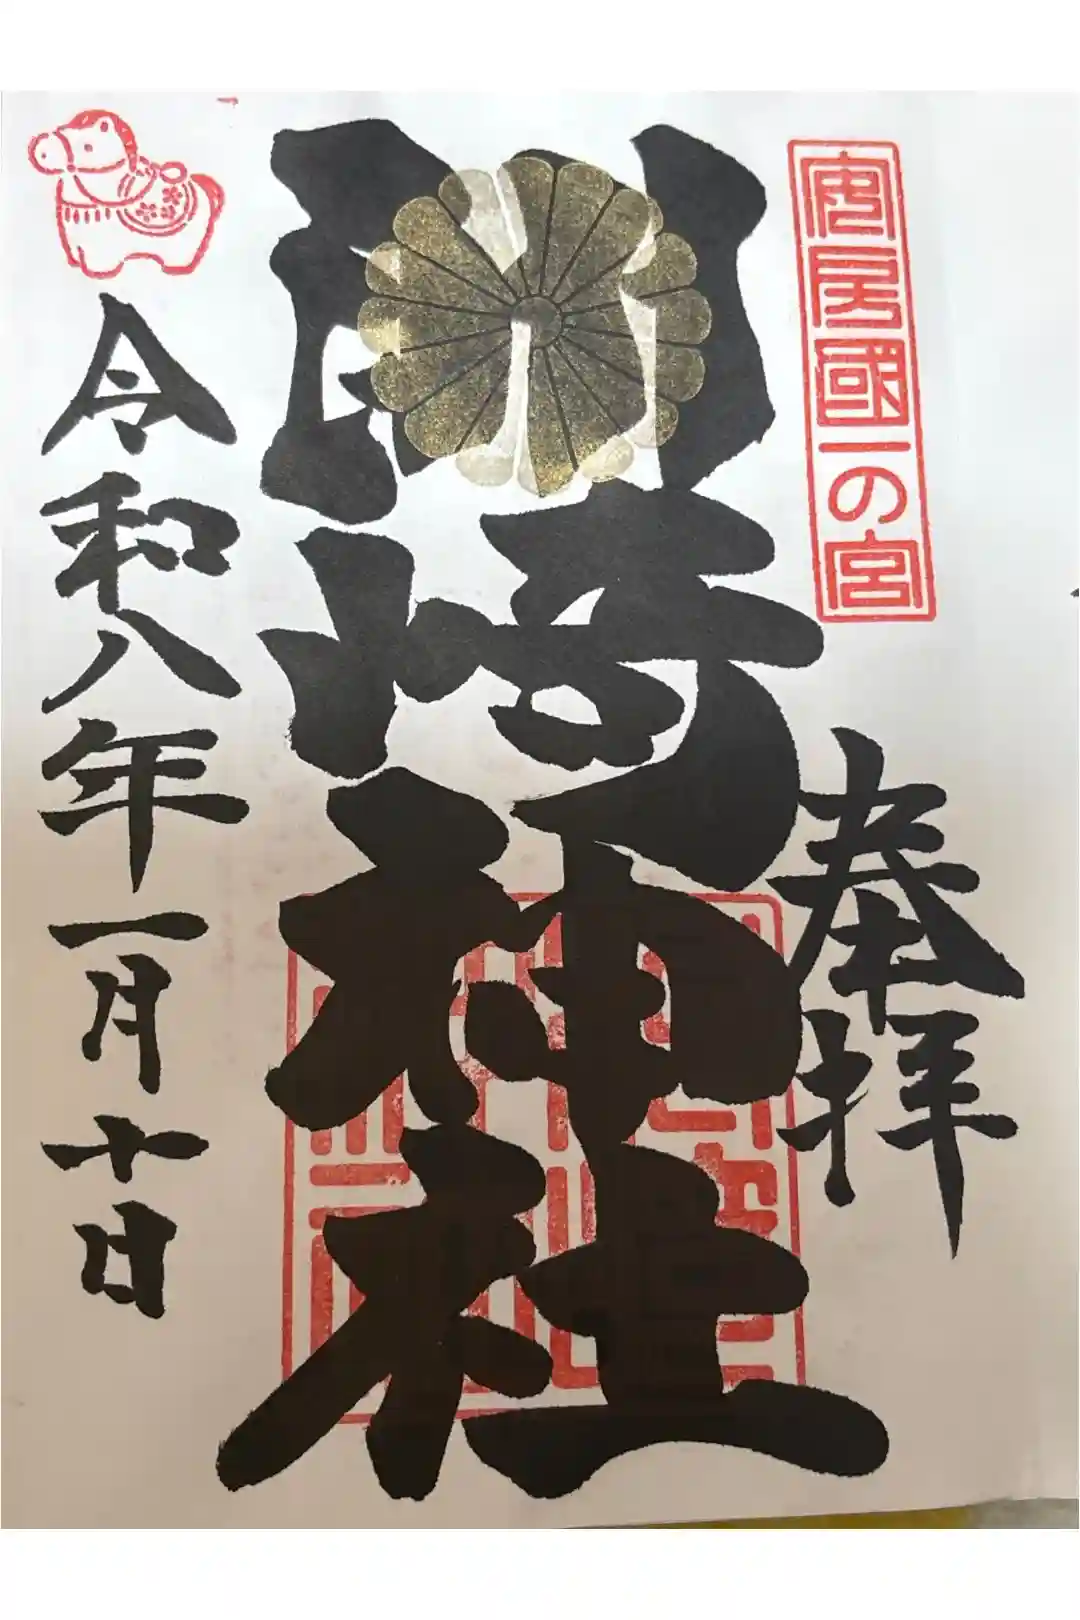 安房國一の宮
奉拝
洲崎神社
令和八年一月十日